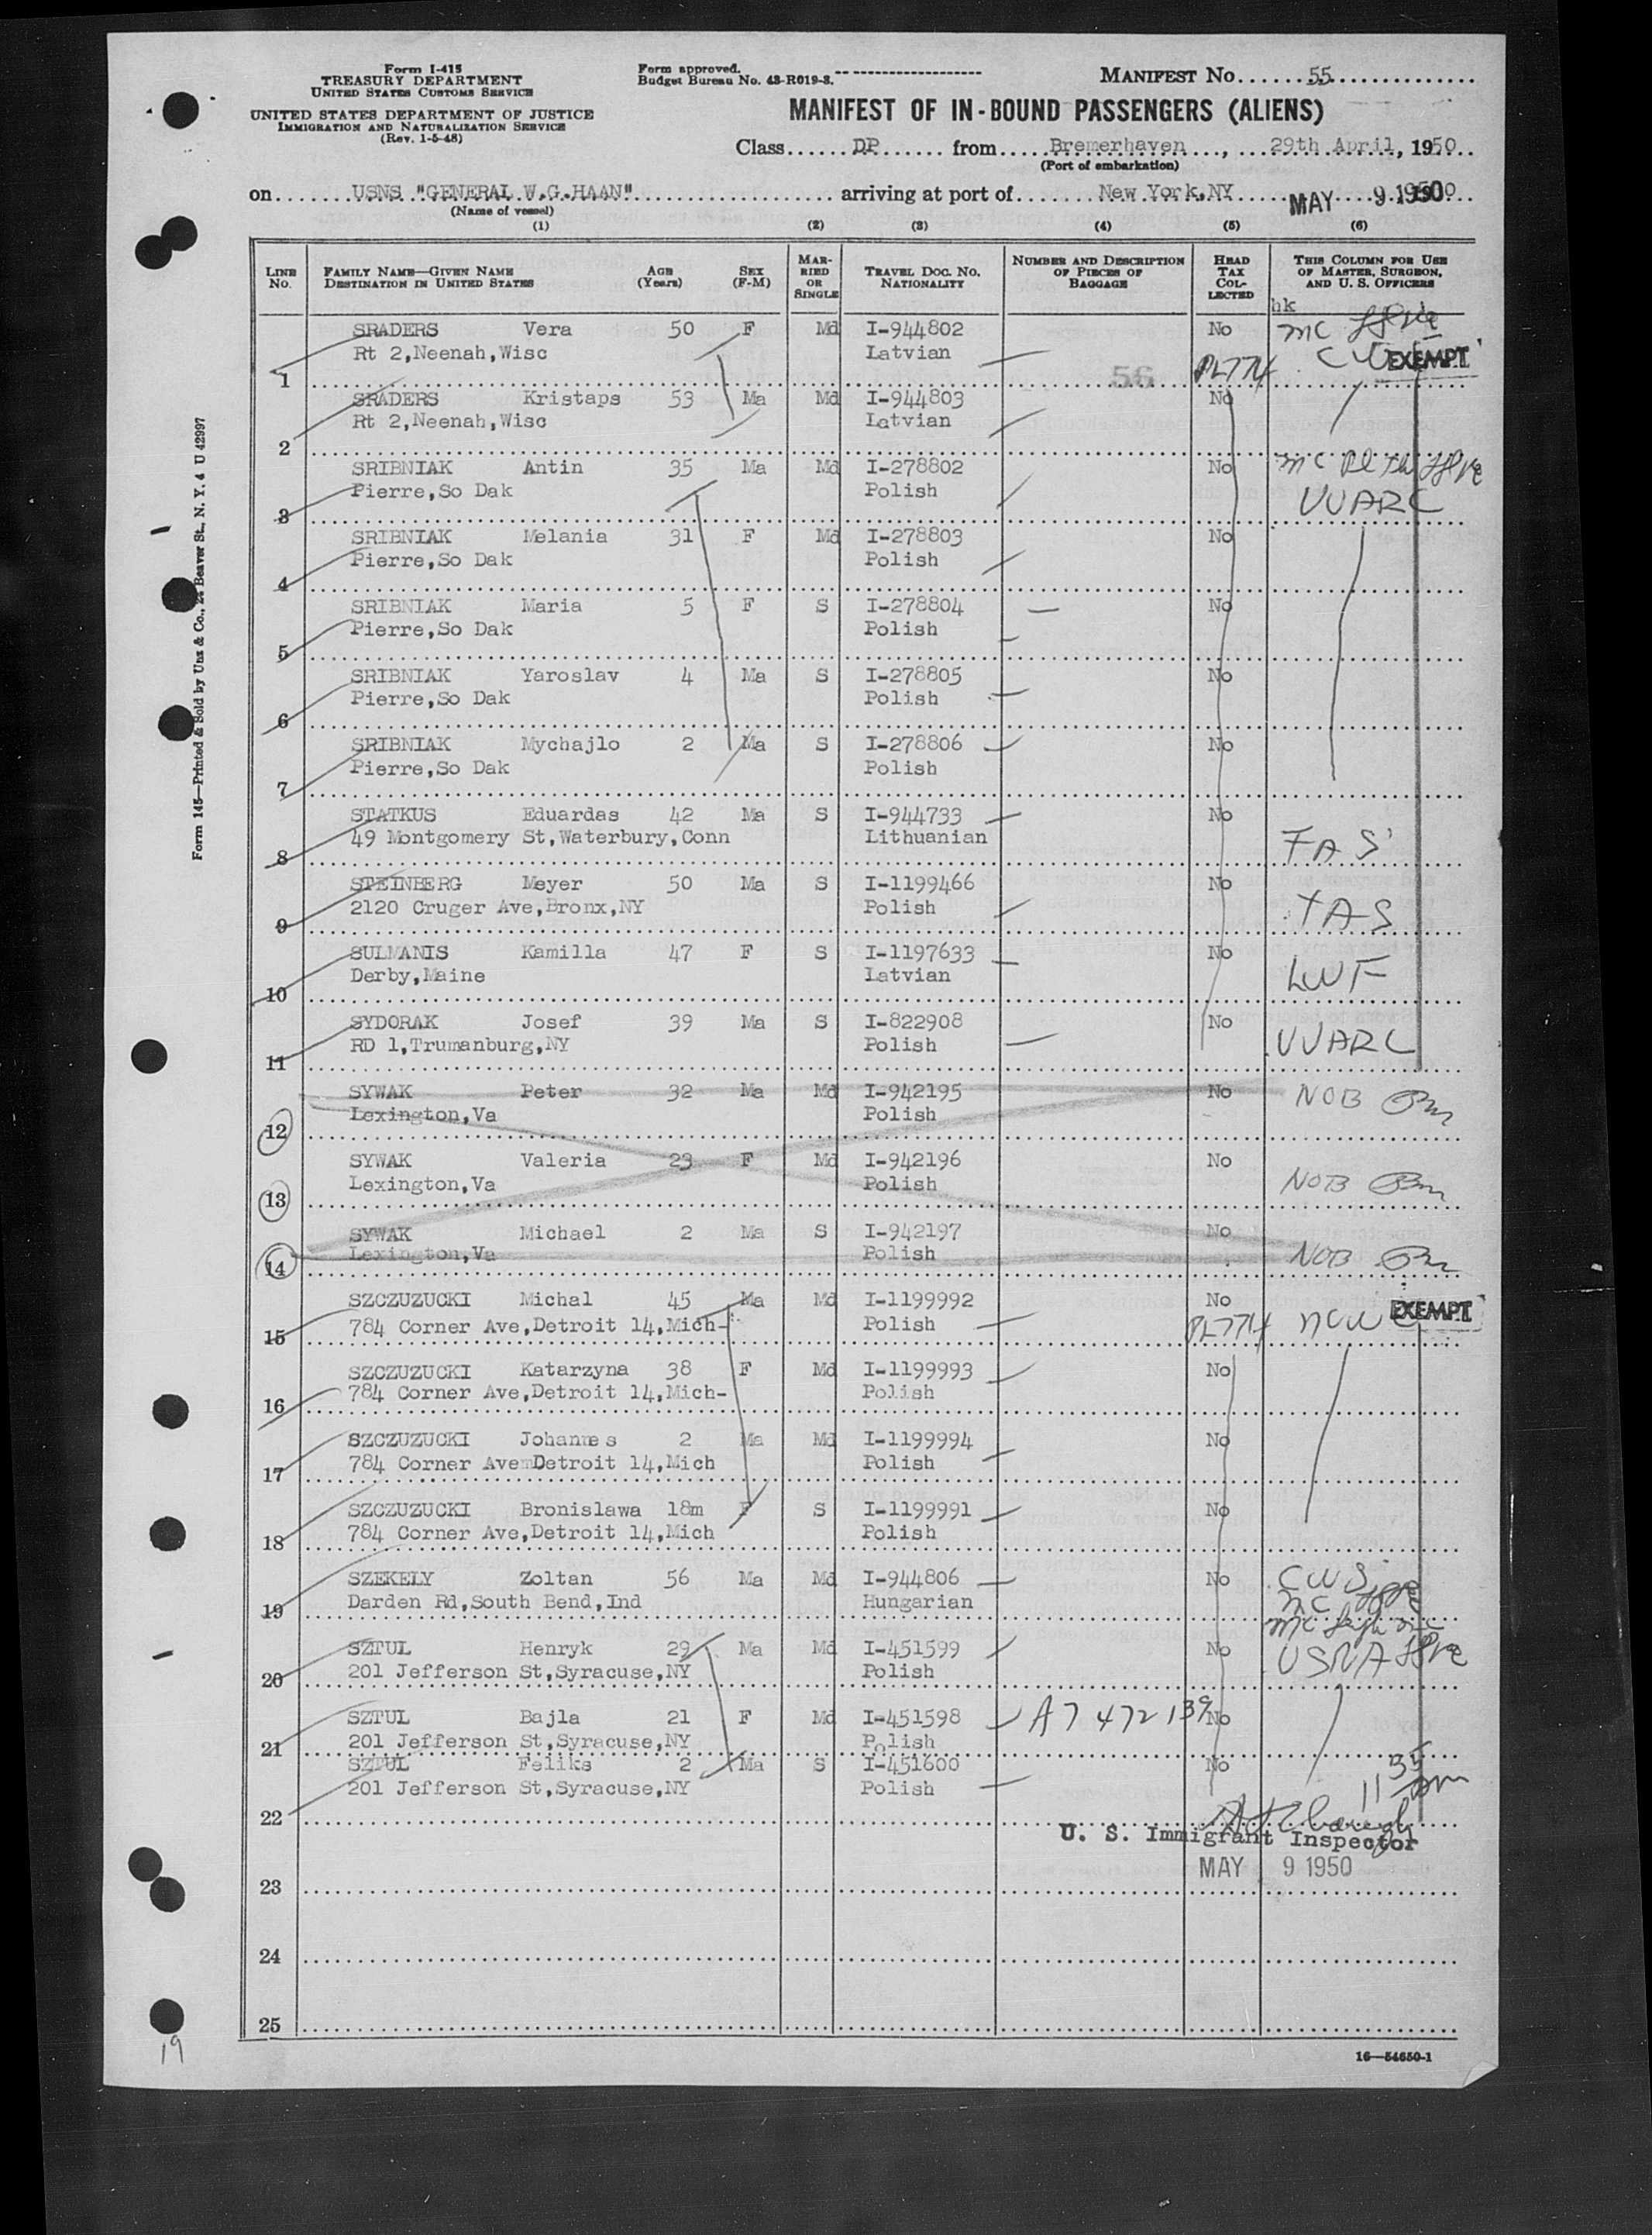 Form I-415
TREASURY DEPARTMENT
UNITED STATES CUSTOMS SERVICE
UNITED STATES DEPARTMENT OF JUSTICE
IMMIGRATION AND NATURALIZATION SERVICE
(Rev. 1-5-48)
Form approved.
Budget Bureau No. 43-R019-3.
MANIFEST No. 55
MANIFEST OF IN-BOUND PASSENGERS (ALIENS)
Class DP from Bremerhaven, 29th April, 1950
(Port of embarkation)
on USNS "GENERAL W.G.HAAN" arriving at port of New York,NY MAY 9 1950
(Name of vessel)
(1) (2) (3) (4) (5) (6)
LINE No. FAMILY NAME—GIVEN NAME DESTINATION IN UNITED STATES AGE (Years) SEX (F-M) MARRIED OR SINGLE TRAVEL DOC. NO. NATIONALITY NUMBER AND DESCRIPTION OF PIECES OF BAGGAGE HEAD TAX COLLECTED THIS COLUMN FOR USE OF MASTER, SURGEON, AND U. S. OFFICERS
hk
SRADERS Vera 50 F Md I-944802 No mc
Rt 2,Neenah,Wisc Latvian EXEMPT
1 56 PL774
SRADERS Kristaps 53 Ma Md I-944803 No
Rt 2,Neenah,Wisc Latvian
2
SRIBNIAK Antin 35 Ma Md I-278802 No mc
Pierre,So Dak Polish UUARC
3
SRIBNIAK Melania 31 F Md I-278803 No
Pierre,So Dak Polish
4
SRIBNIAK Maria 5 F S I-278804 No
Pierre,So Dak Polish
5
SRIBNIAK Yaroslav 4 Ma S I-278805 No
Pierre,So Dak Polish
6
SRIBNIAK Mychajlo 2 Ma S I-278806 No
Pierre,So Dak Polish
7
STATKUS Eduardas 42 Ma S I-944733 No
49 Montgomery St,Waterbury,Conn Lithuanian TAS
8
STEINBERG Meyer 50 Ma S I-1199466 No
2120 Cruger Ave,Bronx,NY Polish TAS
9
SULMANIS Kamilla 47 F S I-1197633 No
Derby,Maine Latvian LWF
10
SYDORAK Josef 39 Ma S I-822908 No
RD 1,Trumanburg,NY Polish UUARC
11
SYWAK Peter 32 Ma Md I-942195 No NOB
Lexington,Va Polish
12
SYWAK Valeria 23 F Md I-942196 No
Lexington,Va Polish NOB
13
SYWAK Michael 2 Ma S I-942197 No
Lexington,Va Polish NOB
14
SZCZUZUCKI Michal 45 Ma Md I-1199992 No EXEMPT
784 Corner Ave,Detroit 14,Mich- Polish PL774 NCWC
15
SZCZUZUCKI Katarzyna 38 F Md I-1199993 No
784 Corner Ave,Detroit 14,Mich- Polish
16
SZCZUZUCKI Johannes 2 Ma Md I-1199994 No
784 Corner AvemDetroit 14,Mich Polish
17
SZCZUZUCKI Bronislawa 18m F S I-1199991 No
784 Corner Ave,Detroit 14,Mich Polish
18
SZEKELY Zoltan 56 Ma Md I-944806 No CWS
Darden Rd,South Bend,Ind Hungarian mc
19
SZTUL Henryk 29 Ma Md I-451599 No
201 Jefferson St,Syracuse,NY Polish USNA
20
SZTUL Bajla 21 F Md I-451598 A7 472 139 No
201 Jefferson St,Syracuse,NY Polish
21
SZTUL Feliks 2 Ma S I-451600 No
201 Jefferson St,Syracuse,NY Polish 11 35 am
22
U. S. Immigrant Inspector
MAY 9 1950
23
24
25
16—54650-1
Form 145—Printed & Sold by Unz & Co., 24 Beaver St., N. Y. 4 U 42997
19